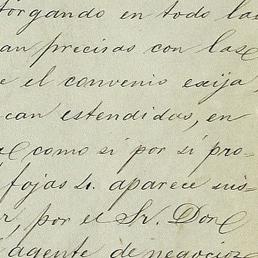 torgando en todo las
an precisas con las
e el convenio exija,
can estendidas, en
como si por si pro=
fojas 4. aparece sus=
r, por el Sr. Don
agente de negocios